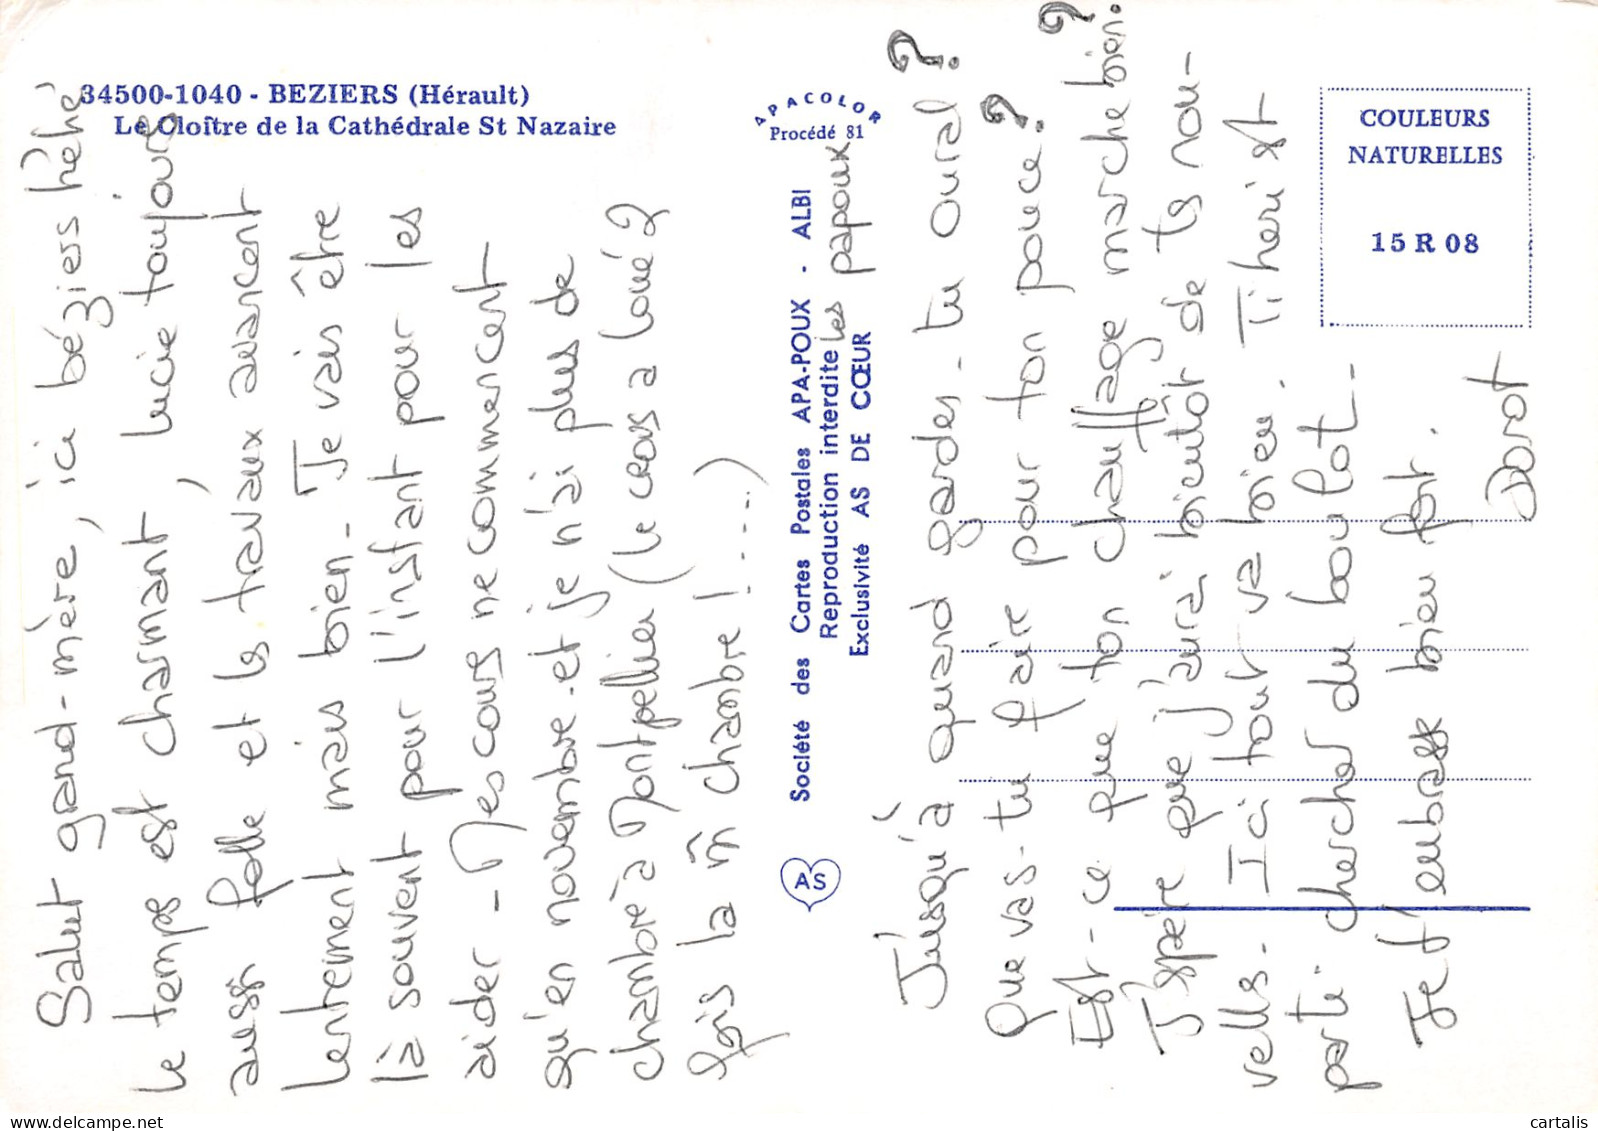 34500-1040 - BEZIERS (Hérault)
Le Cloître de la Cathédrale St Nazaire
APACOLOR
Procédé 81
COULEURS
NATURELLES
15 R 08
Société des Cartes Postales APA-POUX - ALBI
Reproduction interdite
Exclusivité AS DE CŒUR
AS
Salut grand-mère, ici béziers héhé
le temps est charmant, lucie toujours
aussi folle et les travaux avancent
lentement mais bien - Je vais être
là souvent pour l'instant pour les
aider - Mes cours ne commencent
qu'en novembre - et je n'ai plus de
chambre à Montpellier (le cross a loué 2
fois la m̂ chambre !....)
Jusqu'à quand gardes-tu oural ?
les papoux
Que vas-tu faire pour ton pouce ?
Est-ce que ton chauffage marche bien ?
J'espère que j'aurai bientôt de tes nou-
velles - Ici tout va bien. Ti heni est
parti chercher du boulot -
Je t'embrasse bien fort.
Dorot
cartalis